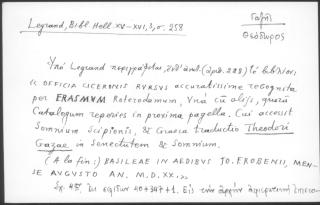 Legrand, Bibl. Hell. XV-XVI, 3, σ. 258
Γαζῆς
Θεόδωρος
Ὑπὸ Legrand περιγράφεται, ἐνθ' ἀνωτ. (ἀριθ. 288) τὸ βιβλίον:
« OFFICIA CICERONIS RVRSVS accuratissime recognita
per ERASMVM Roterodamum, Vnà cū alijs, quorū
Catalogum reperies in proxima pagella. Cui accessit
Somnium Scipionis, & Graeca traductio Theodori
Gazae in Senectutem & Somnium.
(A la fin:) BASILEAE IN AEDIBVS JO. FROBENII, MEN-
SE AUGUSTO AN. M.D.XX.»
Εἰς 4ον, ἐκ σελίδων 40+347+1. Εἰς τὴν ἀρχὴν ἀφιερωτικὴ ἐπιστο-